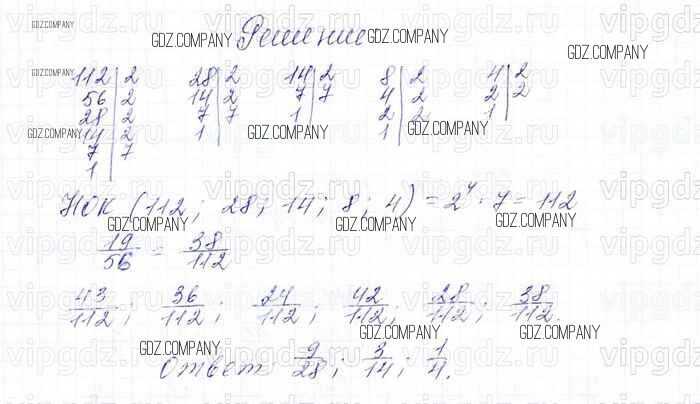 Решение
112 | 2   28 | 2   14 | 2   8 | 2   4 | 2
56 | 2   14 | 2   7 | 7   4 | 2   2 | 2
28 | 2   7 | 7   1   2 | 2   1
14 | 2   1   1
7 | 7
1
НОК (112; 28; 14; 8; 4) = 2⁴ · 7 = 112
19/56 = 38/112
43/112; 36/112; 24/112; 42/112; 28/112; 38/112.
Ответ 9/28; 3/14; 1/4.
GDZ.COMPANY
GDZ.COMPANY
GDZ.COMPANY
GDZ.COMPANY
GDZ.COMPANY
GDZ.COMPANY
GDZ.COMPANY
GDZ.COMPANY
GDZ.COMPANY
GDZ.COMPANY
GDZ.COMPANY
GDZ.COMPANY
GDZ.COMPANY
GDZ.COMPANY
vipgdz.ru